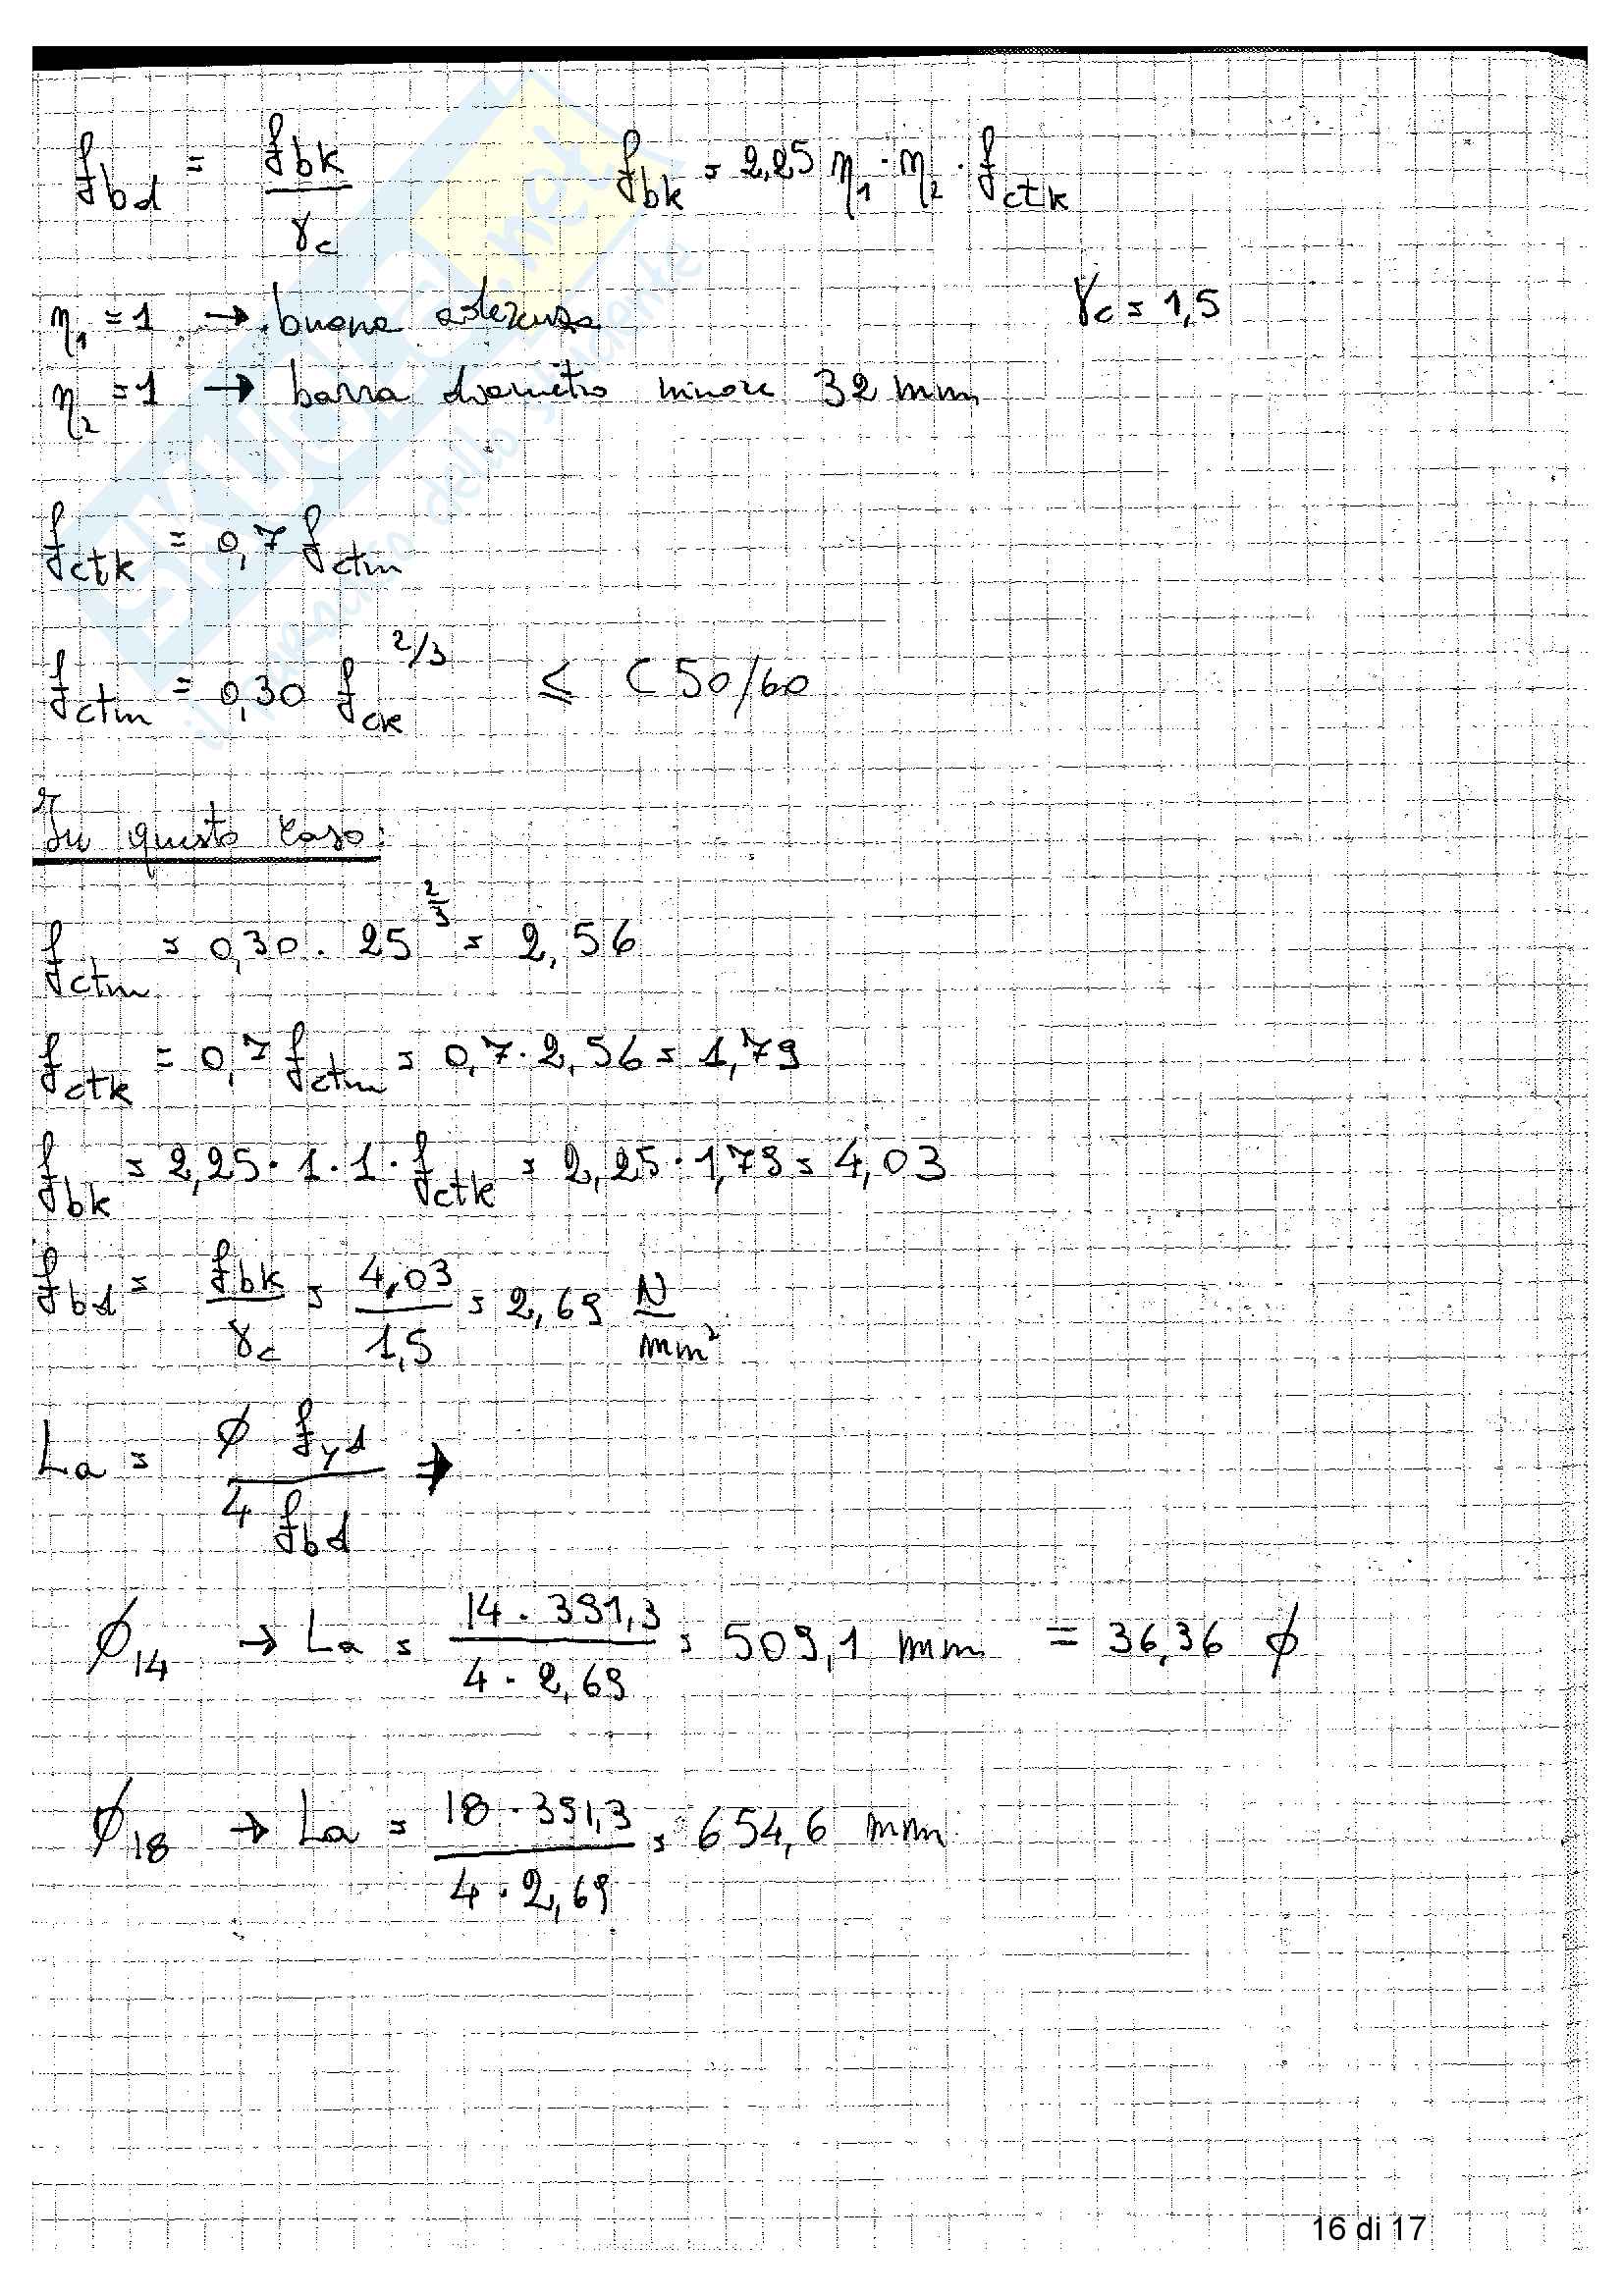 f_bd = f_bk / γ_c    f_bk = 2,25 η_1 · η_2 · f_ctk
η_1 = 1 → buona aderenza    γ_c = 1,5
η_2 = 1 → barra diametro minore 32 mm
f_ctk = 0,7 f_ctm
f_ctm = 0,30 f_ck^2/3    ≤ C 50/60
In questo caso:
f_ctm = 0,30 · 25^2/3 = 2,56
f_ctk = 0,7 f_ctm = 0,7 · 2,56 = 1,79
f_bk = 2,25 · 1 · 1 · f_ctk = 2,25 · 1,79 = 4,03
f_bd = f_bk / γ_c = 4,03 / 1,5 = 2,69 N / mm²
La = ϕ f_yd / 4 f_bd ⇒
ϕ_14 → La = 14 · 391,3 / 4 · 2,69 = 509,1 mm = 36,36 ϕ
ϕ_18 → La = 18 · 391,3 / 4 · 2,69 = 654,6 mm
16 di 17